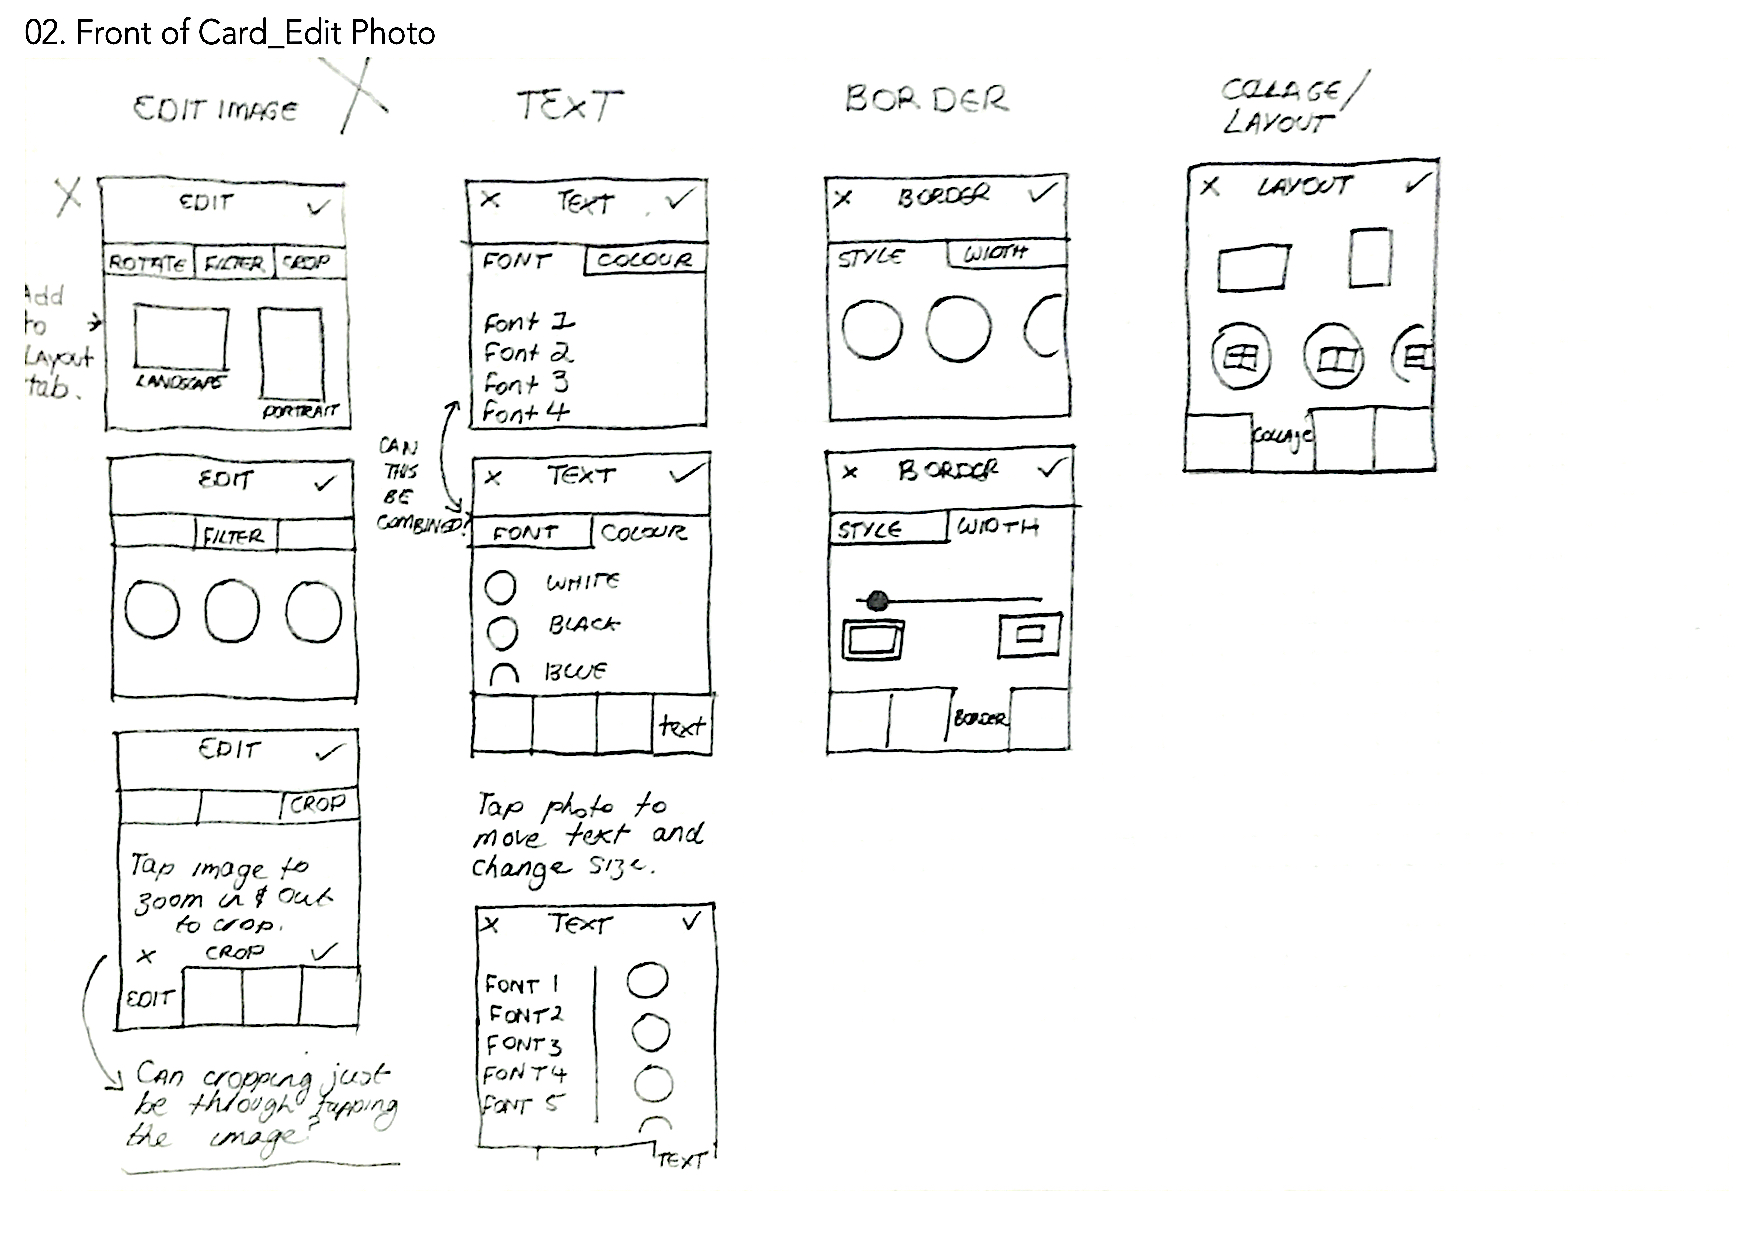 02. Front of Card_Edit Photo
EDIT IMAGE
X
EDIT
ROTATE FILTER CROP
LANDSCAPE
PORTRAIT
Add
to
Layout
tab.
EDIT
FILTER
EDIT
CROP
Tap image to
zoom in & out
to crop.
X CROP ✓
EDIT
Can cropping just
be through tapping
the image?
TEXT
X TEXT ✓
FONT COLOUR
Font 1
Font 2
Font 3
Font 4
CAN
THIS
BE
COMBINED?
X TEXT ✓
FONT COLOUR
WHITE
BLACK
BLUE
text
Tap photo to
move text and
change size.
X TEXT ✓
FONT 1
FONT 2
FONT 3
FONT 4
FONT 5
TEXT
BORDER
X BORDER ✓
STYLE WIDTH
X BORDER ✓
STYLE WIDTH
BORDER
COLLAGE/
LAYOUT
X LAYOUT ✓
Collage